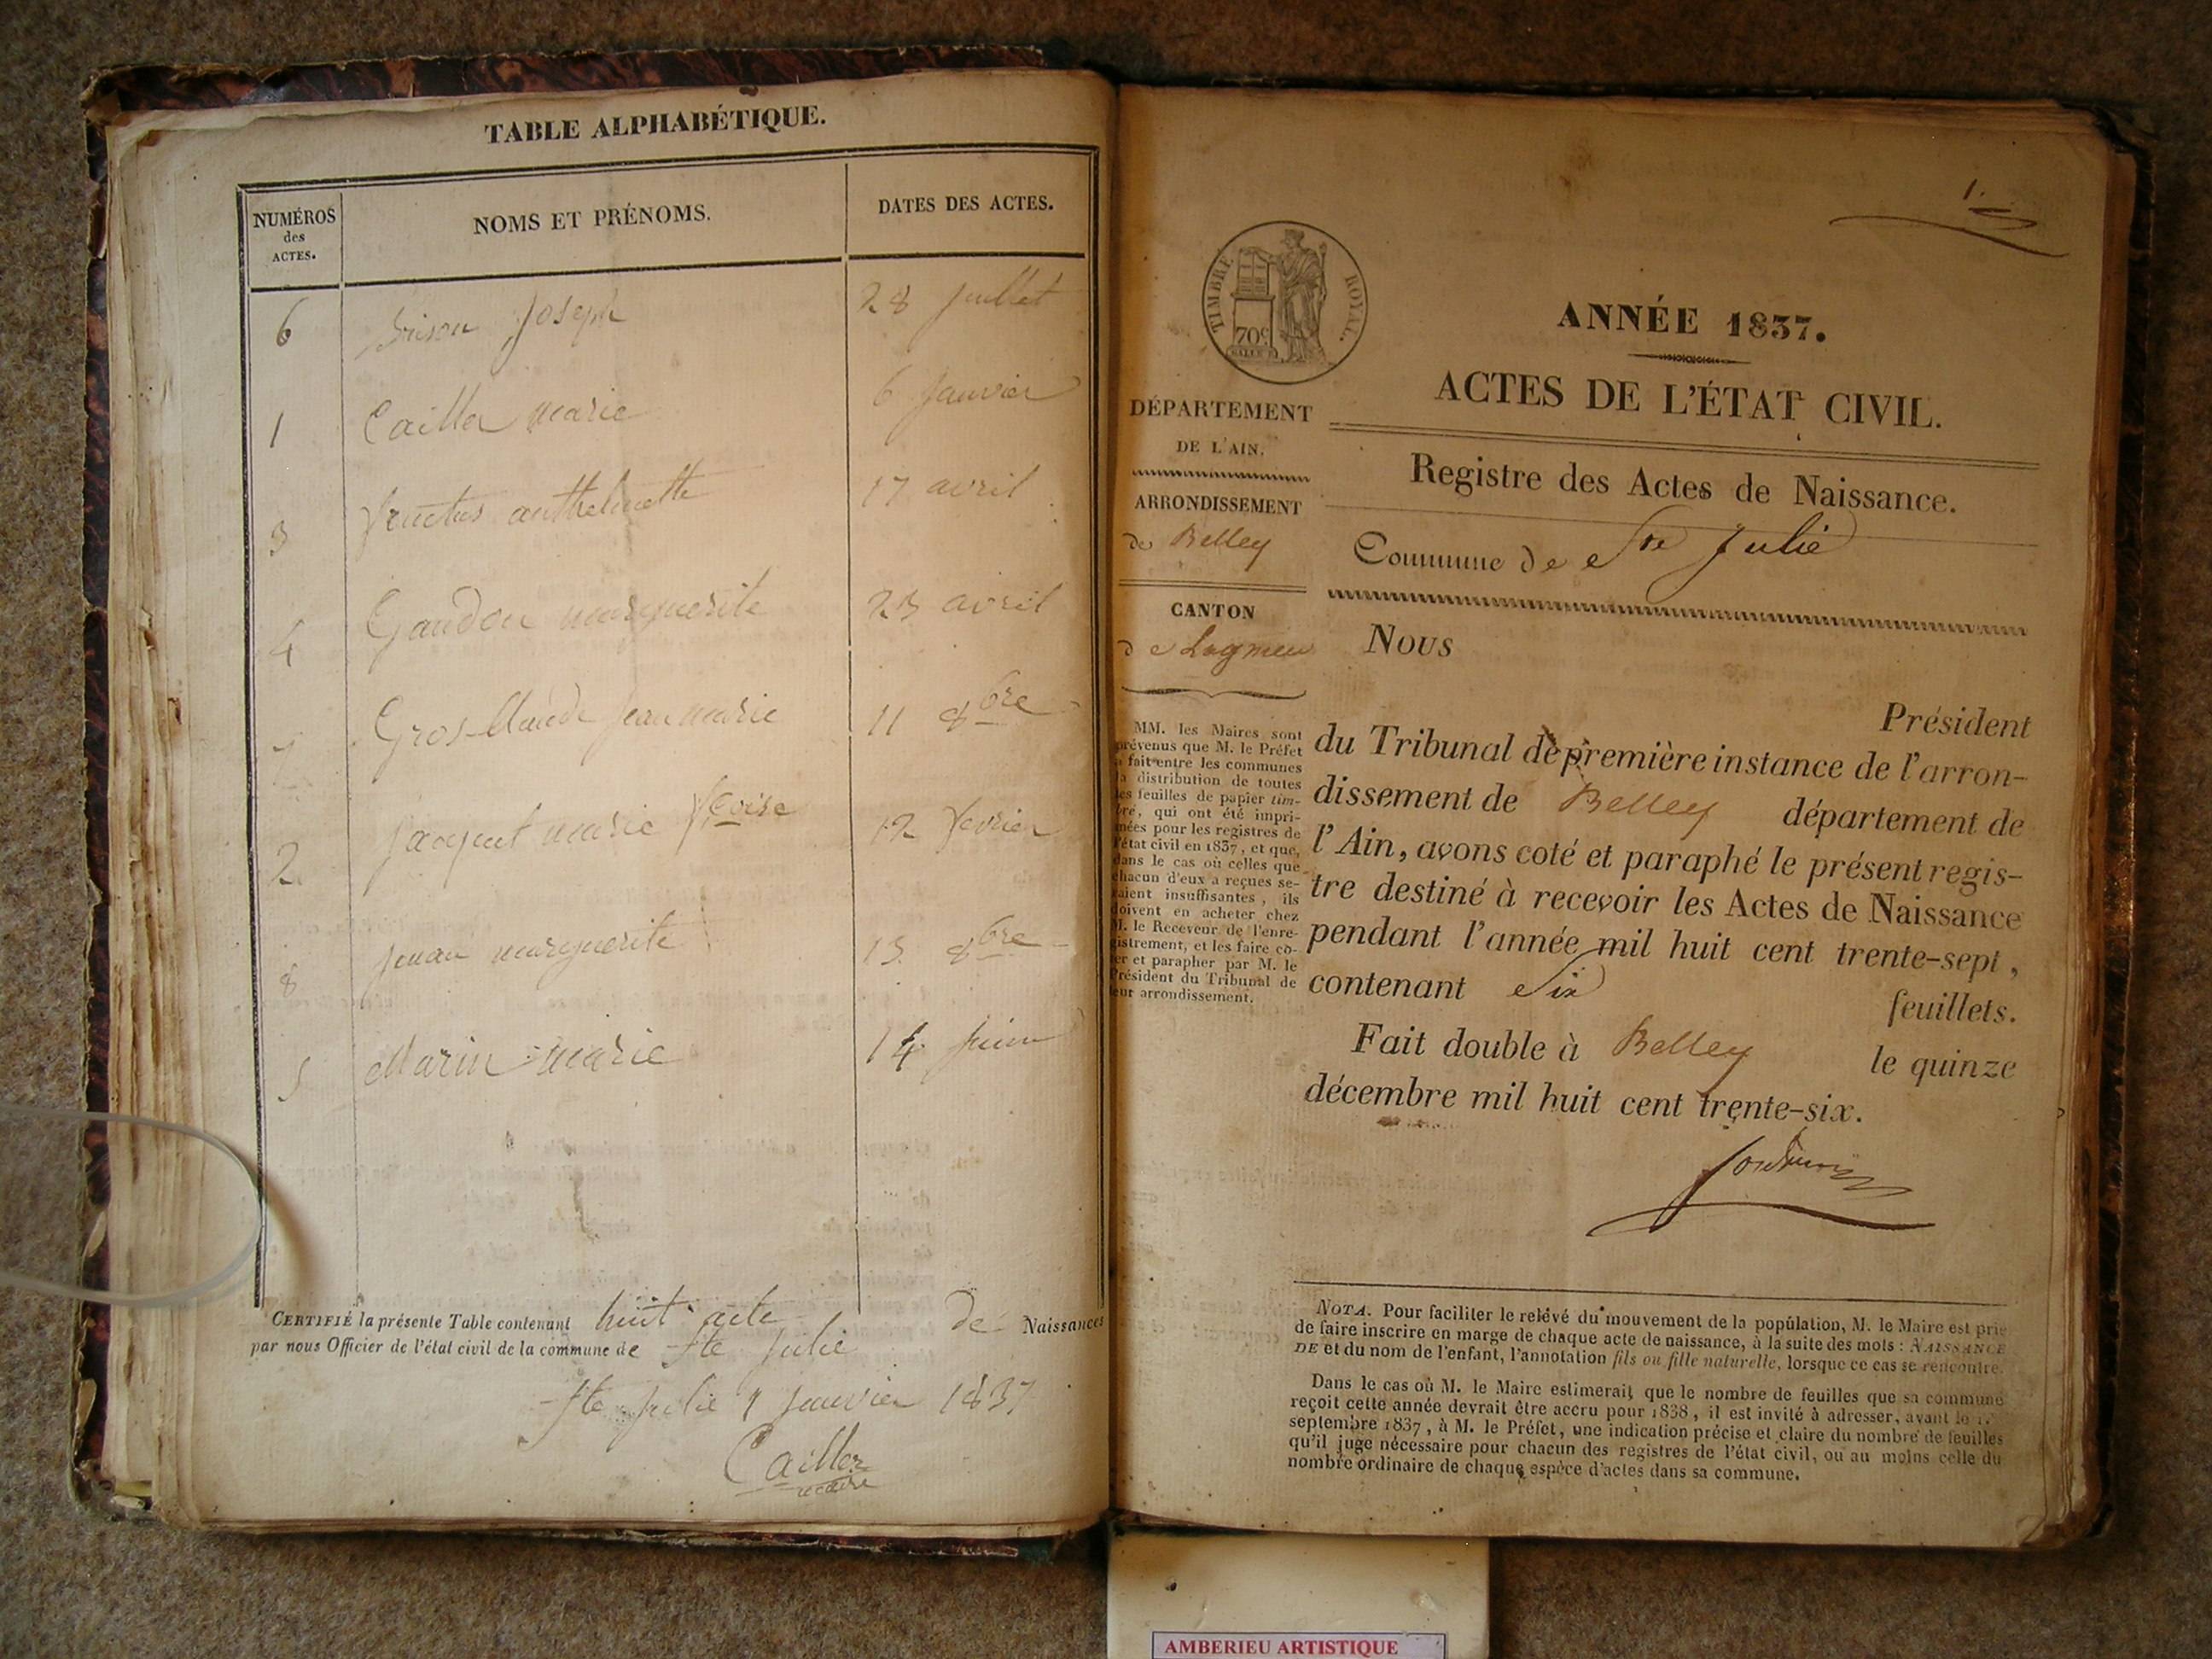 TABLE ALPHABÉTIQUE.
NUMÉROS
des
ACTES.
NOMS ET PRÉNOMS.
DATES DES ACTES.
6 Joseph 28 juillet
1 Cailler marie 6 janvier
3 fructus anthelmette 17 avril
4 Gaudon marguerite 23 avril
7 Gros-Claude jean marie 11 8bre
2 jacquet marie fçoise 12 fevrier
8 marguerite 13 8bre
5 Marin marie 14 juin
CERTIFIÉ la présente Table contenant huit acte de Naissances
par nous Officier de l'état civil de la commune de Ste Julie
Ste julie janvier 1837
Cailler
maire
1
TIMBRE ROYAL.
70c
ANNÉE 1837.
ACTES DE L'ÉTAT CIVIL.
Registre des Actes de Naissance.
Commune de Ste Julie
DÉPARTEMENT
DE L'AIN.
ARRONDISSEMENT
de Belley
CANTON
de Lagnieu
MM. les Maires sont
prévenus que M. le Préfet
a fait entre les communes
la distribution de toutes
les feuilles de papier tim-
bré, qui ont été impri-
mées pour les registres de
l'état civil en 1837, et que,
dans le cas où celles que
chacun d'eux a reçues se-
raient insuffisantes, ils
doivent en acheter chez
M. le Receveur de l'enre-
gistrement, et les faire co-
ter et parapher par M. le
Président du Tribunal de
leur arrondissement.
Nous
Président
du Tribunal de première instance de l'arron-
dissement de Belley département de
l'Ain, avons coté et paraphé le présent regis-
tre destiné à recevoir les Actes de Naissance
pendant l'année mil huit cent trente-sept,
contenant Six feuillets.
Fait double à Belley le quinze
décembre mil huit cent trente-six.
NOTA. Pour faciliter le relevé du mouvement de la population, M. le Maire est prié
de faire inscrire en marge de chaque acte de naissance, à la suite des mots : NAISSANCE
DE et du nom de l'enfant, l'annotation fils ou fille naturelle, lorsque ce cas se rencontre.
Dans le cas où M. le Maire estimerait que le nombre de feuilles que sa commune
reçoit cette année devrait être accru pour 1838, il est invité à adresser, avant le 1.er
septembre 1837, à M. le Préfet, une indication précise et claire du nombre de feuilles
qu'il juge nécessaire pour chacun des registres de l'état civil, ou au moins celle du
nombre ordinaire de chaque espèce d'actes dans sa commune.
AMBERIEU ARTISTIQUE